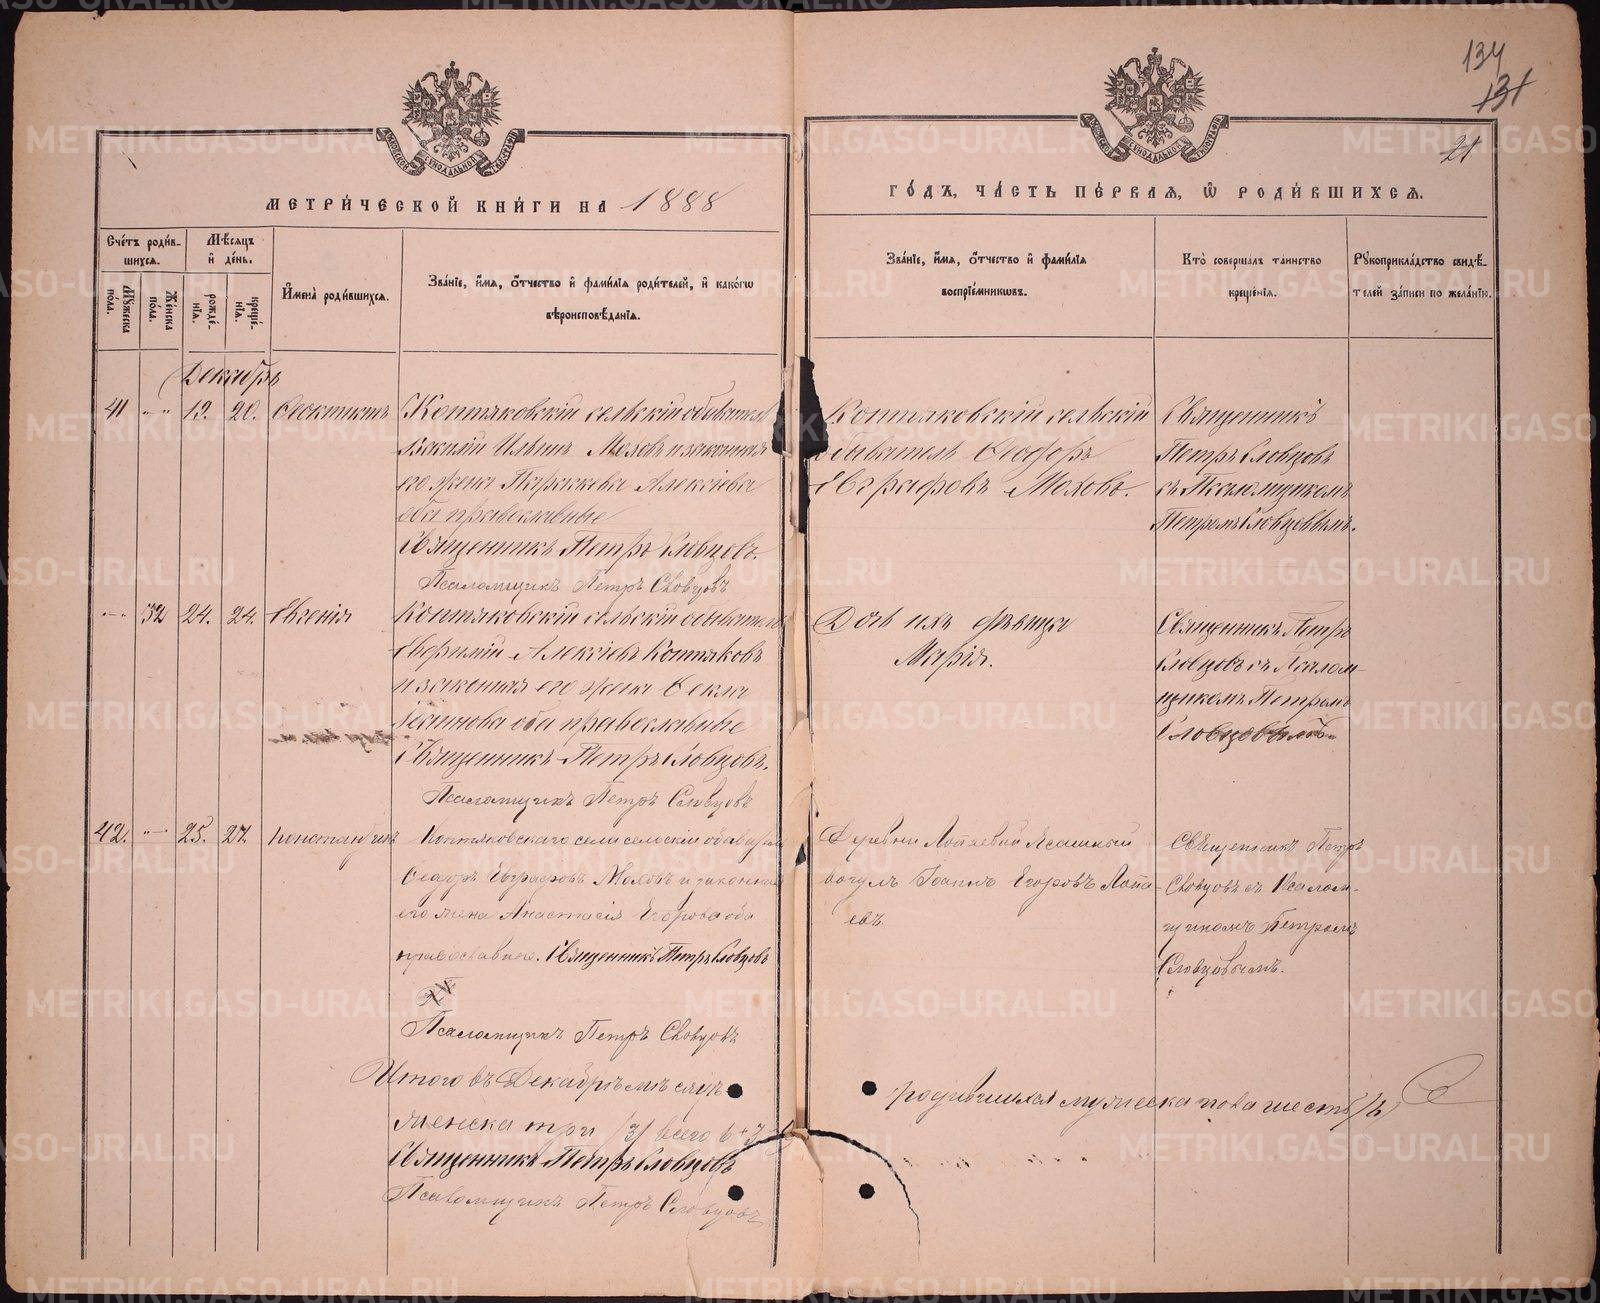 134
131
21
МЕТРИ́ЧЕСКОЙ КНИ́ГИ НА 1888
ГО́ДЪ, ЧА́СТЬ ПЕ́РВАЯ, Ѿ РОДИ́ВШИХСЯ.
Сче́тъ роди́в-
шихся.
Мѣ́сяцъ
и де́нь.
Му́жеска по́ла.
Же́нска по́ла.
рожде́-
нія.
креще́-
нія.
Имена̀ роди́вшихся.
Зва́ніе, и́мя, о́тчество и фами́лія роди́телей, и како́гѡ
вѣроисповѣ́данія.
Зва́ніе, и́мя, о́тчество и фами́лія
воспріе́мниковъ.
Кто̀ соверша́лъ таинство
креще́нія.
Рукоприкла́дство свидѣ́-
телей за́писи по жела́нію.
Декабрь
41 19. 20. Ѳеоктистъ
Коптяковскій сельскій обыватель
Ильинъ Моховъ и законная
его жена Параскева Алексіева
оба православные
Священникъ Петръ Словцовъ.
Псаломщикъ Петръ Словцовъ
Коптяковскій сельскій
обыватель Ѳеодоръ
Евграфовъ Моховъ.
Священникъ
Петръ Словцовъ
съ Псаломщикомъ
Петромъ Словцовымъ.
32 24. 24. Евгенія
Коптяковскій сельскій обыватель
Евфимій Алексіевъ Коптяковъ
и законная его жена Ѳекла
оба православные
Священникъ Петръ Словцовъ.
Псаломщикъ Петръ Словцовъ
Дочь ихъ дѣвица
Марія.
Священникъ Петръ
Словцовъ съ Псалом-
щикомъ Петромъ
Словцовымъ
42. 25. 27. Константинъ
Коптяковскаго села сельскій обыватель
Ѳеодоръ Евграфовъ Моховъ и законная
его жена Анастасія Егорова оба
православные. Священникъ Петръ Словцовъ
Псаломщикъ Петръ Словцовъ
Деревни Лопаевой Ясашный
вогулъ Іоаннъ Егоровъ Лопа-
евъ.
Священникъ Петръ
Словцовъ съ Псалом-
щикомъ Петромъ
Словцовымъ.
Итого въ Декабрѣ мѣсяцѣ
родившихся мужеска пола шесть /6/
женска три /3/ всего 6+3
Священникъ Петръ Словцовъ
Псаломщикъ Петръ Словцовъ
METRIKI.GASO-URAL.RU